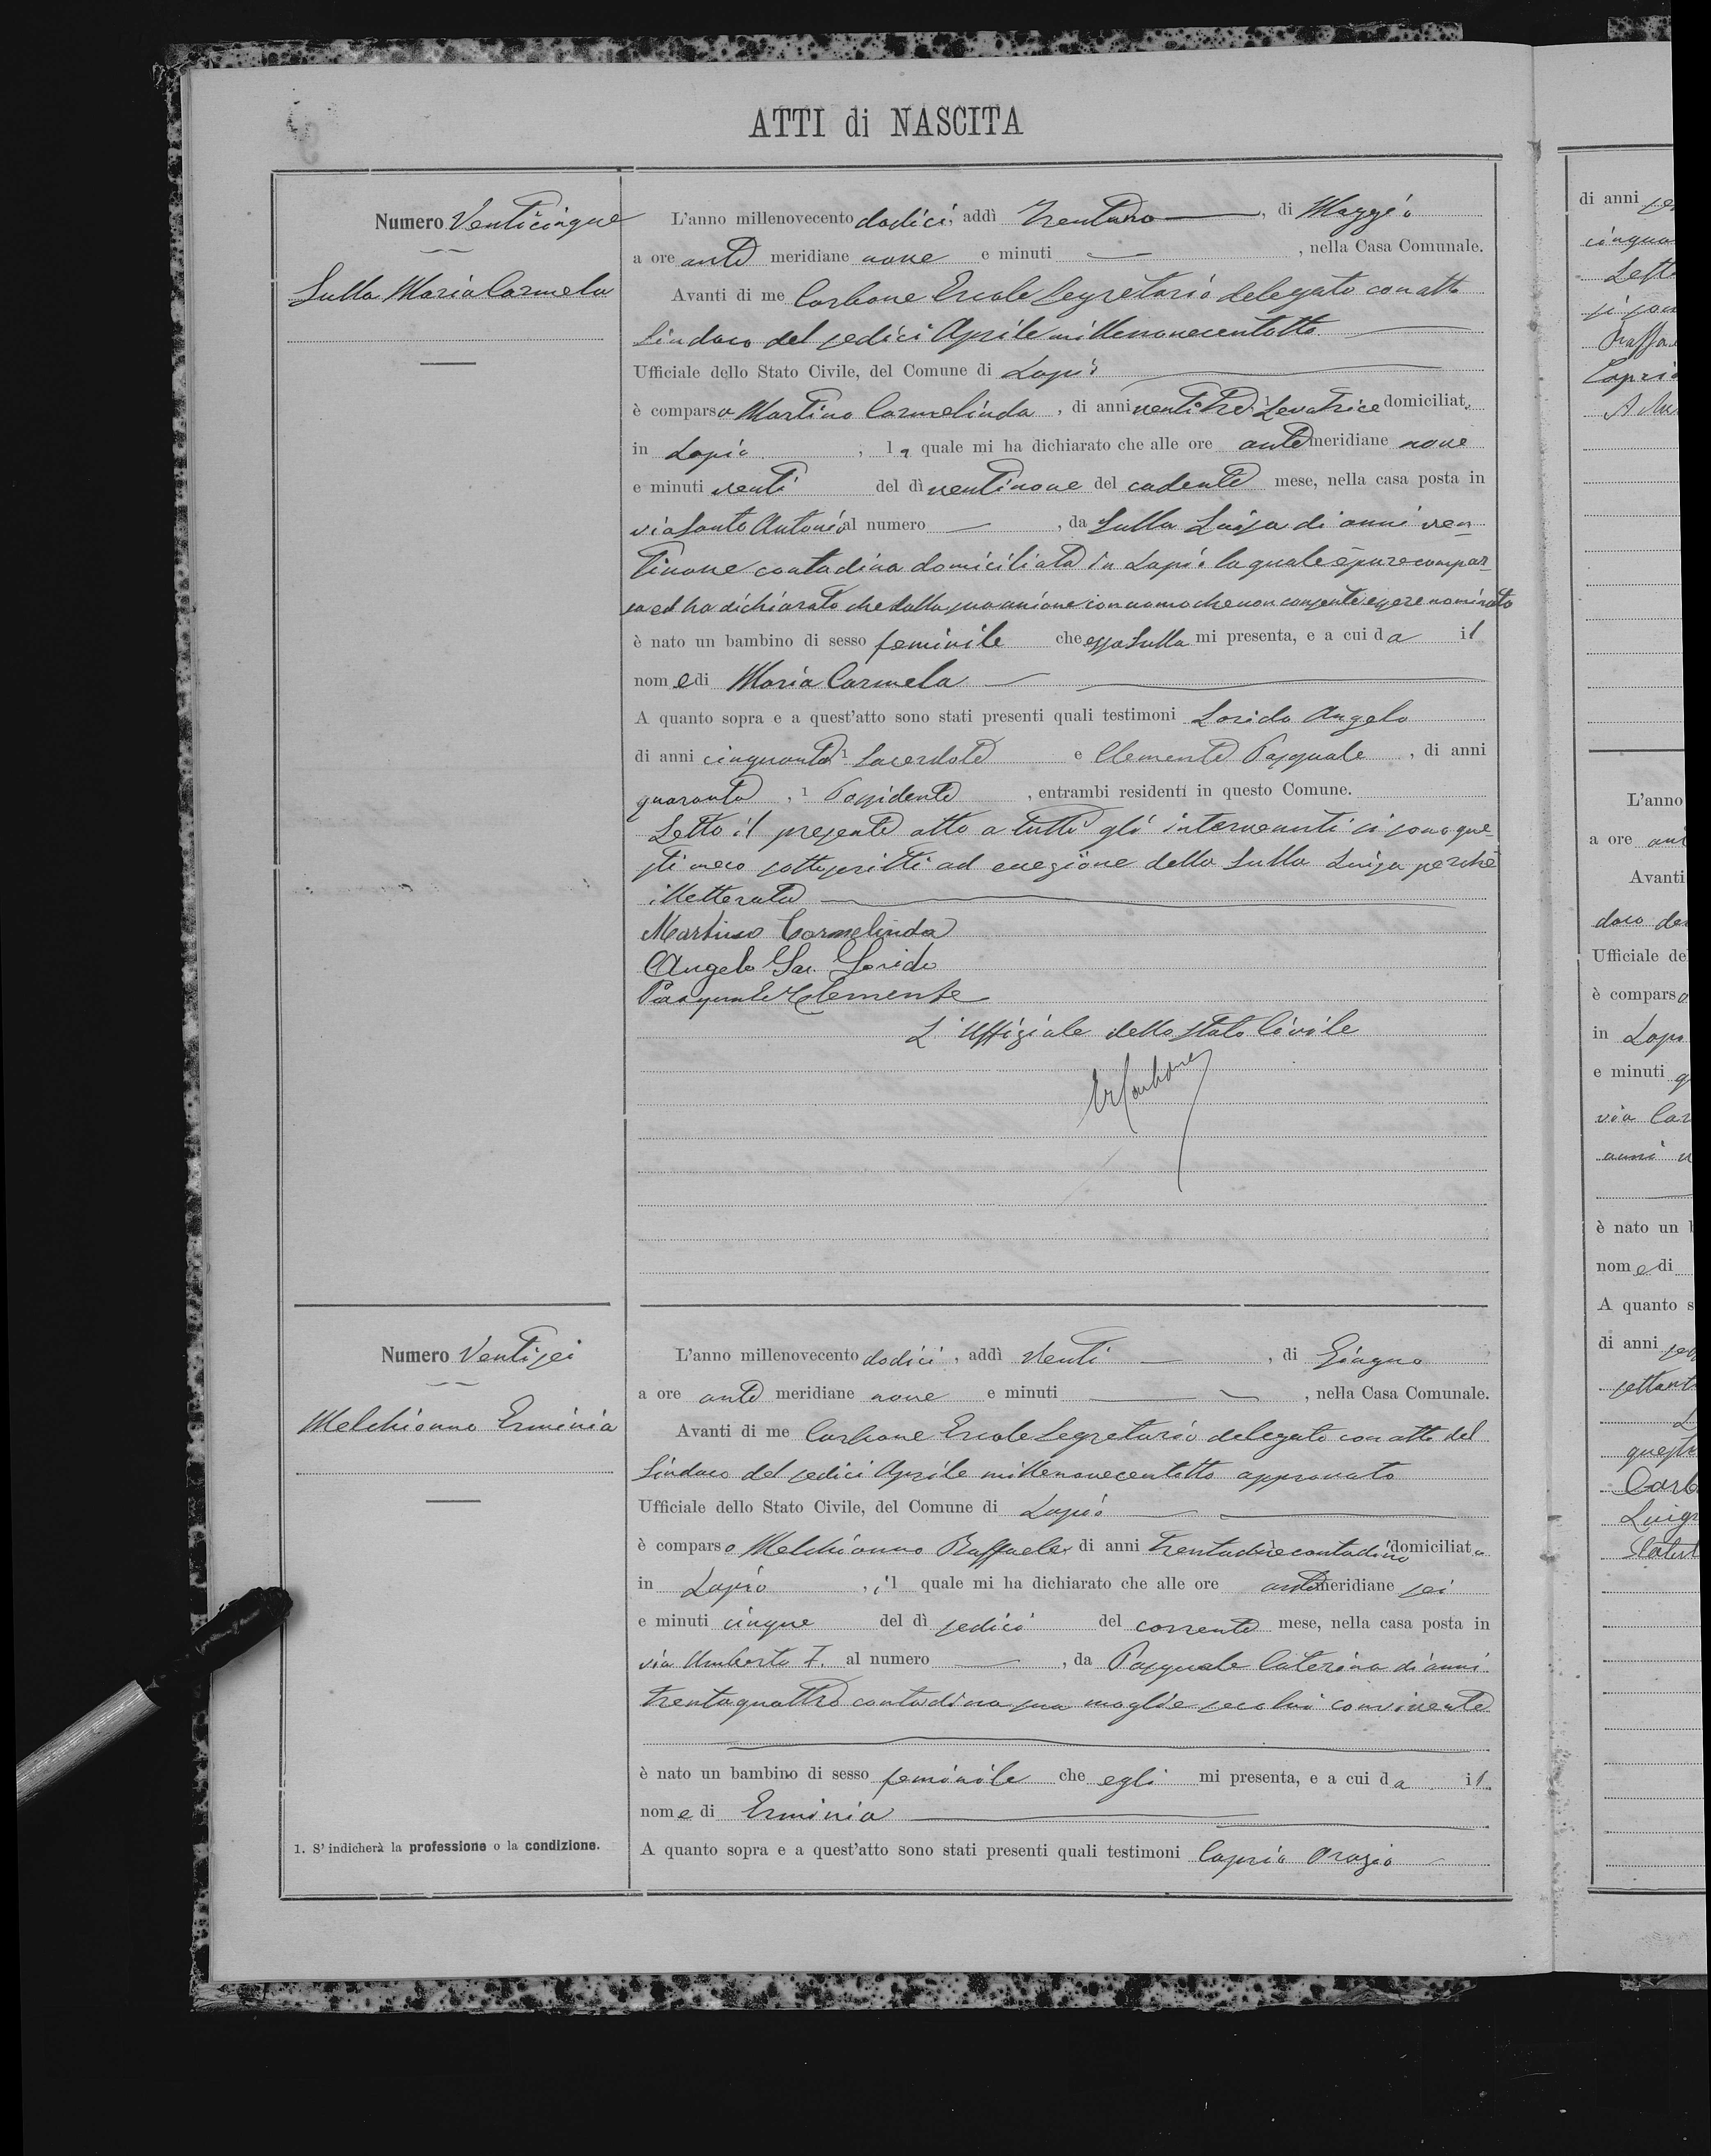 ATTI di NASCITA
Numero Venticinque
Sullo Maria Carmela
L'anno millenovecento dodici, addì Trentuno, di Maggio
a ore ante meridiane nove e minuti —, nella Casa Comunale.
Avanti di me Carbone Ercole Segretario delegato con atto
Sindaco del sedici Aprile millenovecentotto
Ufficiale dello Stato Civile, del Comune di Lapio
è comparsa Martino Carmelinda, di anni ventitre, 1 Levatrice domiciliata
in Lapio, la quale mi ha dichiarato che alle ore ante meridiane nove
e minuti venti del dì ventinove del cadente mese, nella casa posta in
via Santo Antonio al numero —, da Sullo Luisa di anni ven-
tinove contadina domiciliata in Lapio la quale è pure compar-
sa ed ha dichiarato che dalla sua unione con uomo che non consente essere nominato
è nato un bambino di sesso feminile che essa Sullo mi presenta, e a cui da il
nome di Maria Carmela
A quanto sopra e a quest'atto sono stati presenti quali testimoni Lorido Angelo
di anni cinquanta 1 Sacerdote e Clemente Pasquale, di anni
quaranta, 1 Possidente, entrambi residenti in questo Comune.
Letto il presente atto a tutti gli intervenuti si sono que-
sti meco sottoscritti ad eccezione della Sullo Luisa perché
illetterata
Martino Carmelinda
Angelo Sac. Lorido
Pasquale Clemente
L'Uffiziale dello Stato Civile
Er Carbone
Numero Ventisei
Melchionno Erminia
L'anno millenovecento dodici, addì Venti —, di Giugno
a ore ante meridiane nove e minuti —, nella Casa Comunale.
Avanti di me Carbone Ercole Segretario delegato con atto del
Sindaco del sedici Aprile millenovecentotto approvato
Ufficiale dello Stato Civile, del Comune di Lapio
è comparso Melchionno Raffaele, di anni trentadue contadino domiciliato
in Lapio, il quale mi ha dichiarato che alle ore ante meridiane sei
e minuti cinque del dì sedici del corrente mese, nella casa posta in
via Umberto I. al numero —, da Pasquale Caterina di anni
trentaquattro contadina sua moglie seco lui convivente
è nato un bambino di sesso feminile che egli mi presenta, e a cui da il
nome di Erminia
A quanto sopra e a quest'atto sono stati presenti quali testimoni Caprio Orazio
1. S'indicherà la professione o la condizione.
di anni
L'anno
a ore
Avanti
Ufficiale de
è comparso
in Lapi
e minuti
via Car
anni
è nato un
nome di
A quanto s
di anni
Luig